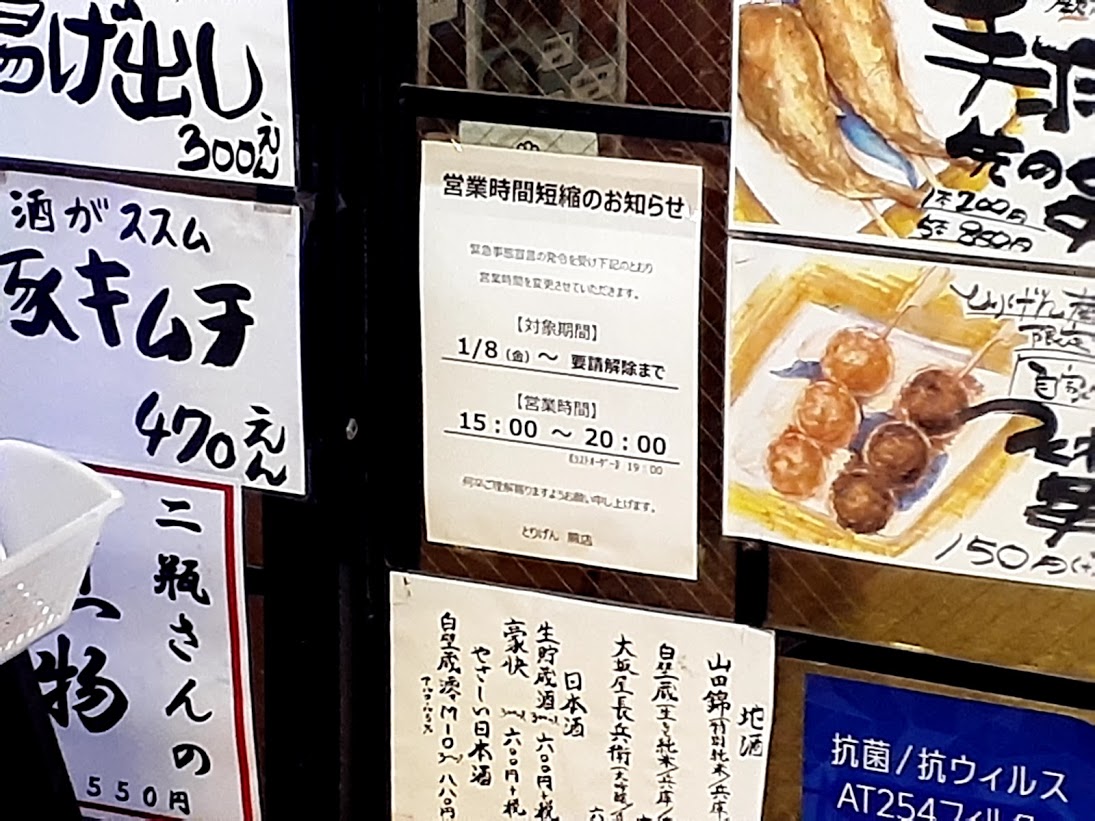 揚げ出し
300えん
酒がススム
豚キムチ
470えん
二瓶さんの
物
550円
営業時間短縮のお知らせ
緊急事態宣言の発令を受け下記のとおり
営業時間を変更させていただきます。
【対象期間】
1/8（金）～ 要請解除まで
【営業時間】
15：00 ～ 20：00
【ラストオーダー】 19：00
何卒ご理解賜りますようお願い申し上げます。
とりげん 蕨店
手羽
先の
1本 200円
5本 850円
とりげん
限定
自家
150円
地酒
山田錦(特別純米/兵庫
白壁蔵(生もと純米/兵庫/
大坂屋長兵衛(大吟醸/
日本酒
生貯蔵酒 300ml 六〇〇円+税
豪快 300ml 六〇〇円+税
やさしい日本酒
白壁蔵澪MIO 八八〇円
抗菌/抗ウィルス
AT254フィルター